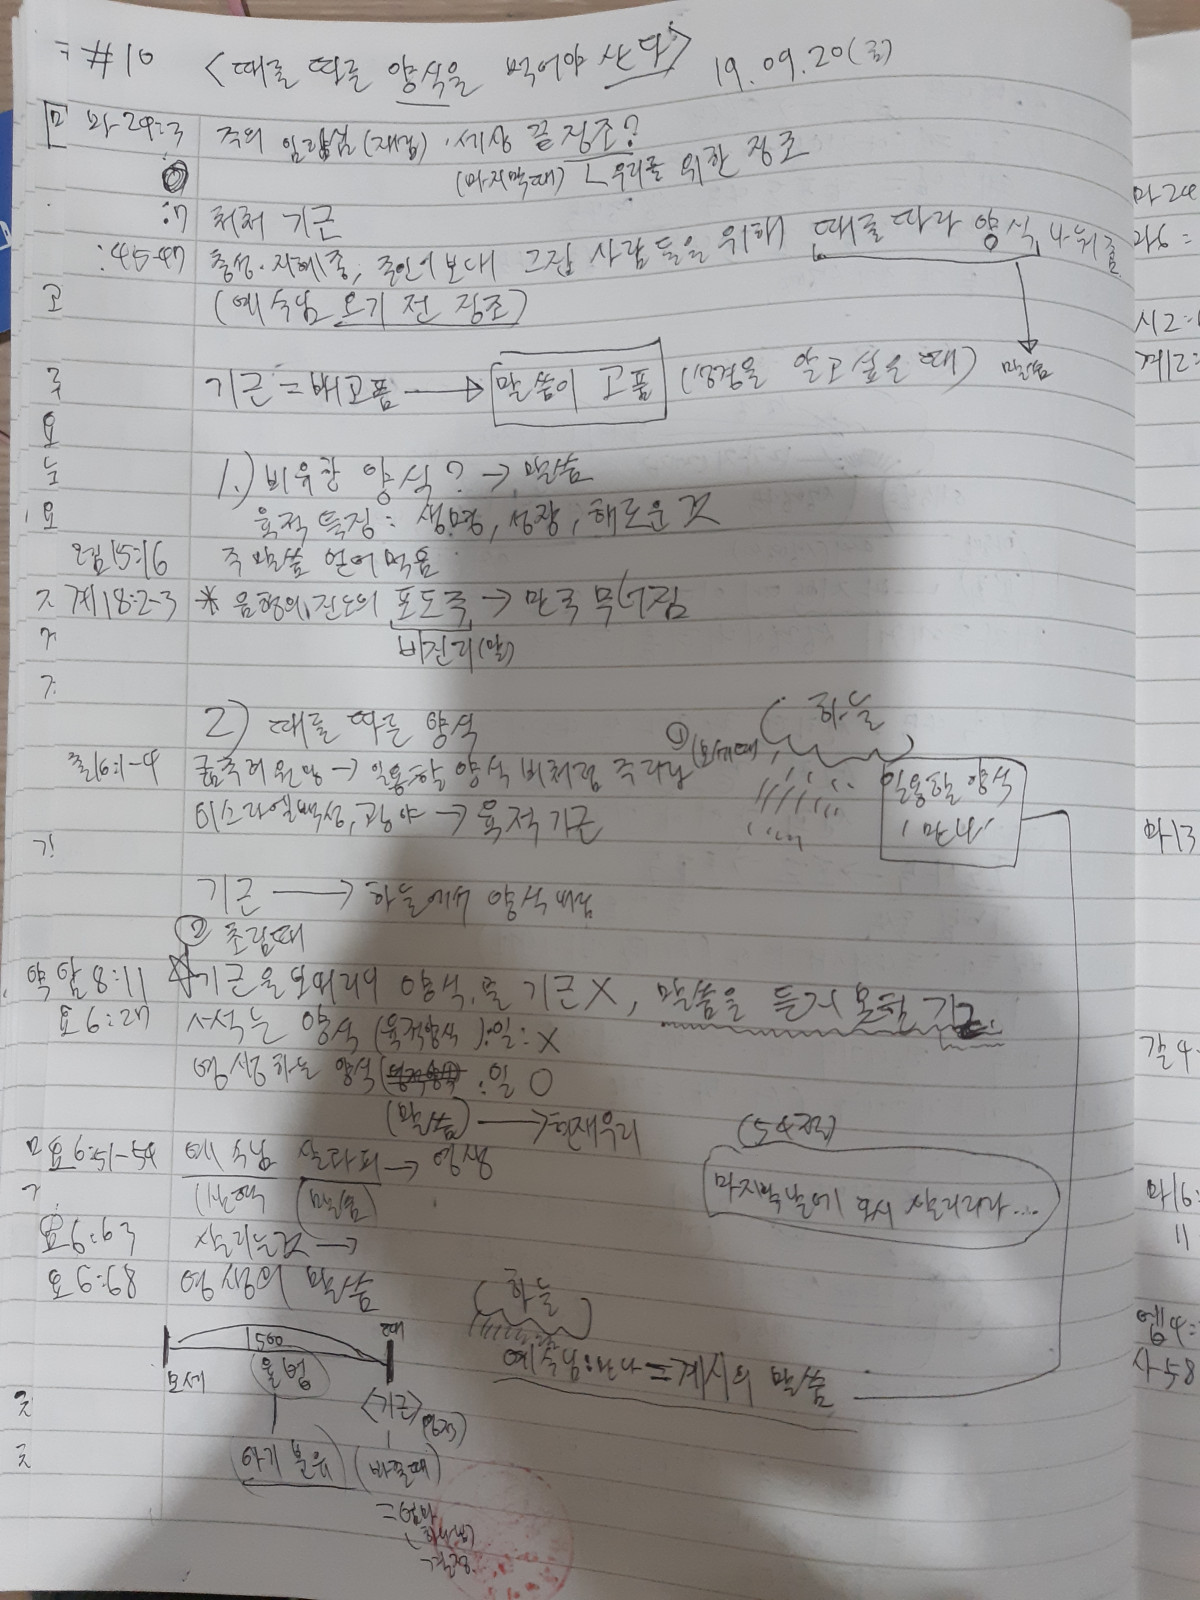 #10 <때를 따른 양식을 먹어야 산다> 19.09.20(금)
마24:3 주의 임하심(재림)·세상 끝 징조?
(마지막때) 우리를 위한 징조
:7 처처 기근
:45-47 충성·지혜종, 주인이 보내 그집 사람들을 위해 때를따라 양식 나눠줌
고 (예수님 오기 전 징조)
기근 = 배고픔 → 말씀이 고픔 (성경을 알고싶을때) 말씀
요
1.) 비유한 양식? → 말씀
요 육적특징: 생명, 성장, 해로운것
렘15:16 주 말씀 얻어먹음
계18:2-3 * 음행의, 진노의 포도주 → 만국 무너짐
비진리(말)
2) 때를 따른 양식
하늘
출16:1-4 굶주려 원망 → 일용할양식 비처럼 주리님 ①(모세때
일용할 양식
이스라엘백성, 광야 → 육적기근
'만나'
기근 → 하늘에서 양식내림
② 초림때
암8:11 ☆기근을 보내리니 양식, 물 기근X, 말씀을 듣지 못한 기근
요6:27 썩는 양식 (육적양식): 일: X
영생하는 양식 : 일 O
(말씀) → 현재우리
(54절)
요6:51-54 예수님 살과피 → 영생
마지막날에 다시 살리리라...
말씀
요6:63 살리는것 →
요6:68 영생의 말씀
하늘
1500
모세 율법
예수님: 만나 = 계시의 말씀
<기근> (영적)
아기 분유 (바뀔때)
마24
마6:
시2:1
계12:
마13
갈4:
마16:
11
엡4:
사58